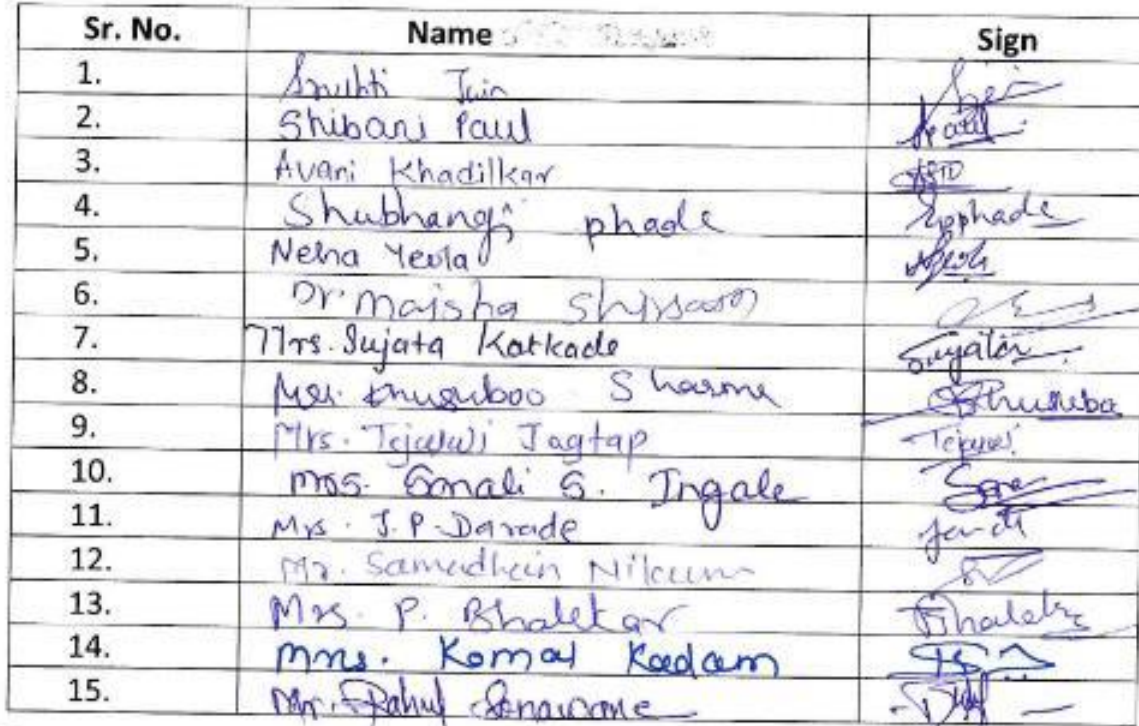 Sr. No. Name Sign
1. Sruhti Jain
2. Shibani Paul Paul
3. Avani Khadilkar
4. Shubhangi phade Spphade
5. Neha Yeola
6. Dr. Maisha
7. Mrs. Sujata Katkade Sujata
8. Khusuboo Sharma Khusubo
9. Mrs. Tejaswi Jagtap Tejaswi
10. Mrs. Sonali S. Ingale Sona
11. Mrs. J. P. Darade
12. Mr. Samadhan Nikum
13. Mrs. P. Bhalekar Bhalekar
14. Mrs. Komal Kadam
15. Mr. Rahul Sonawane